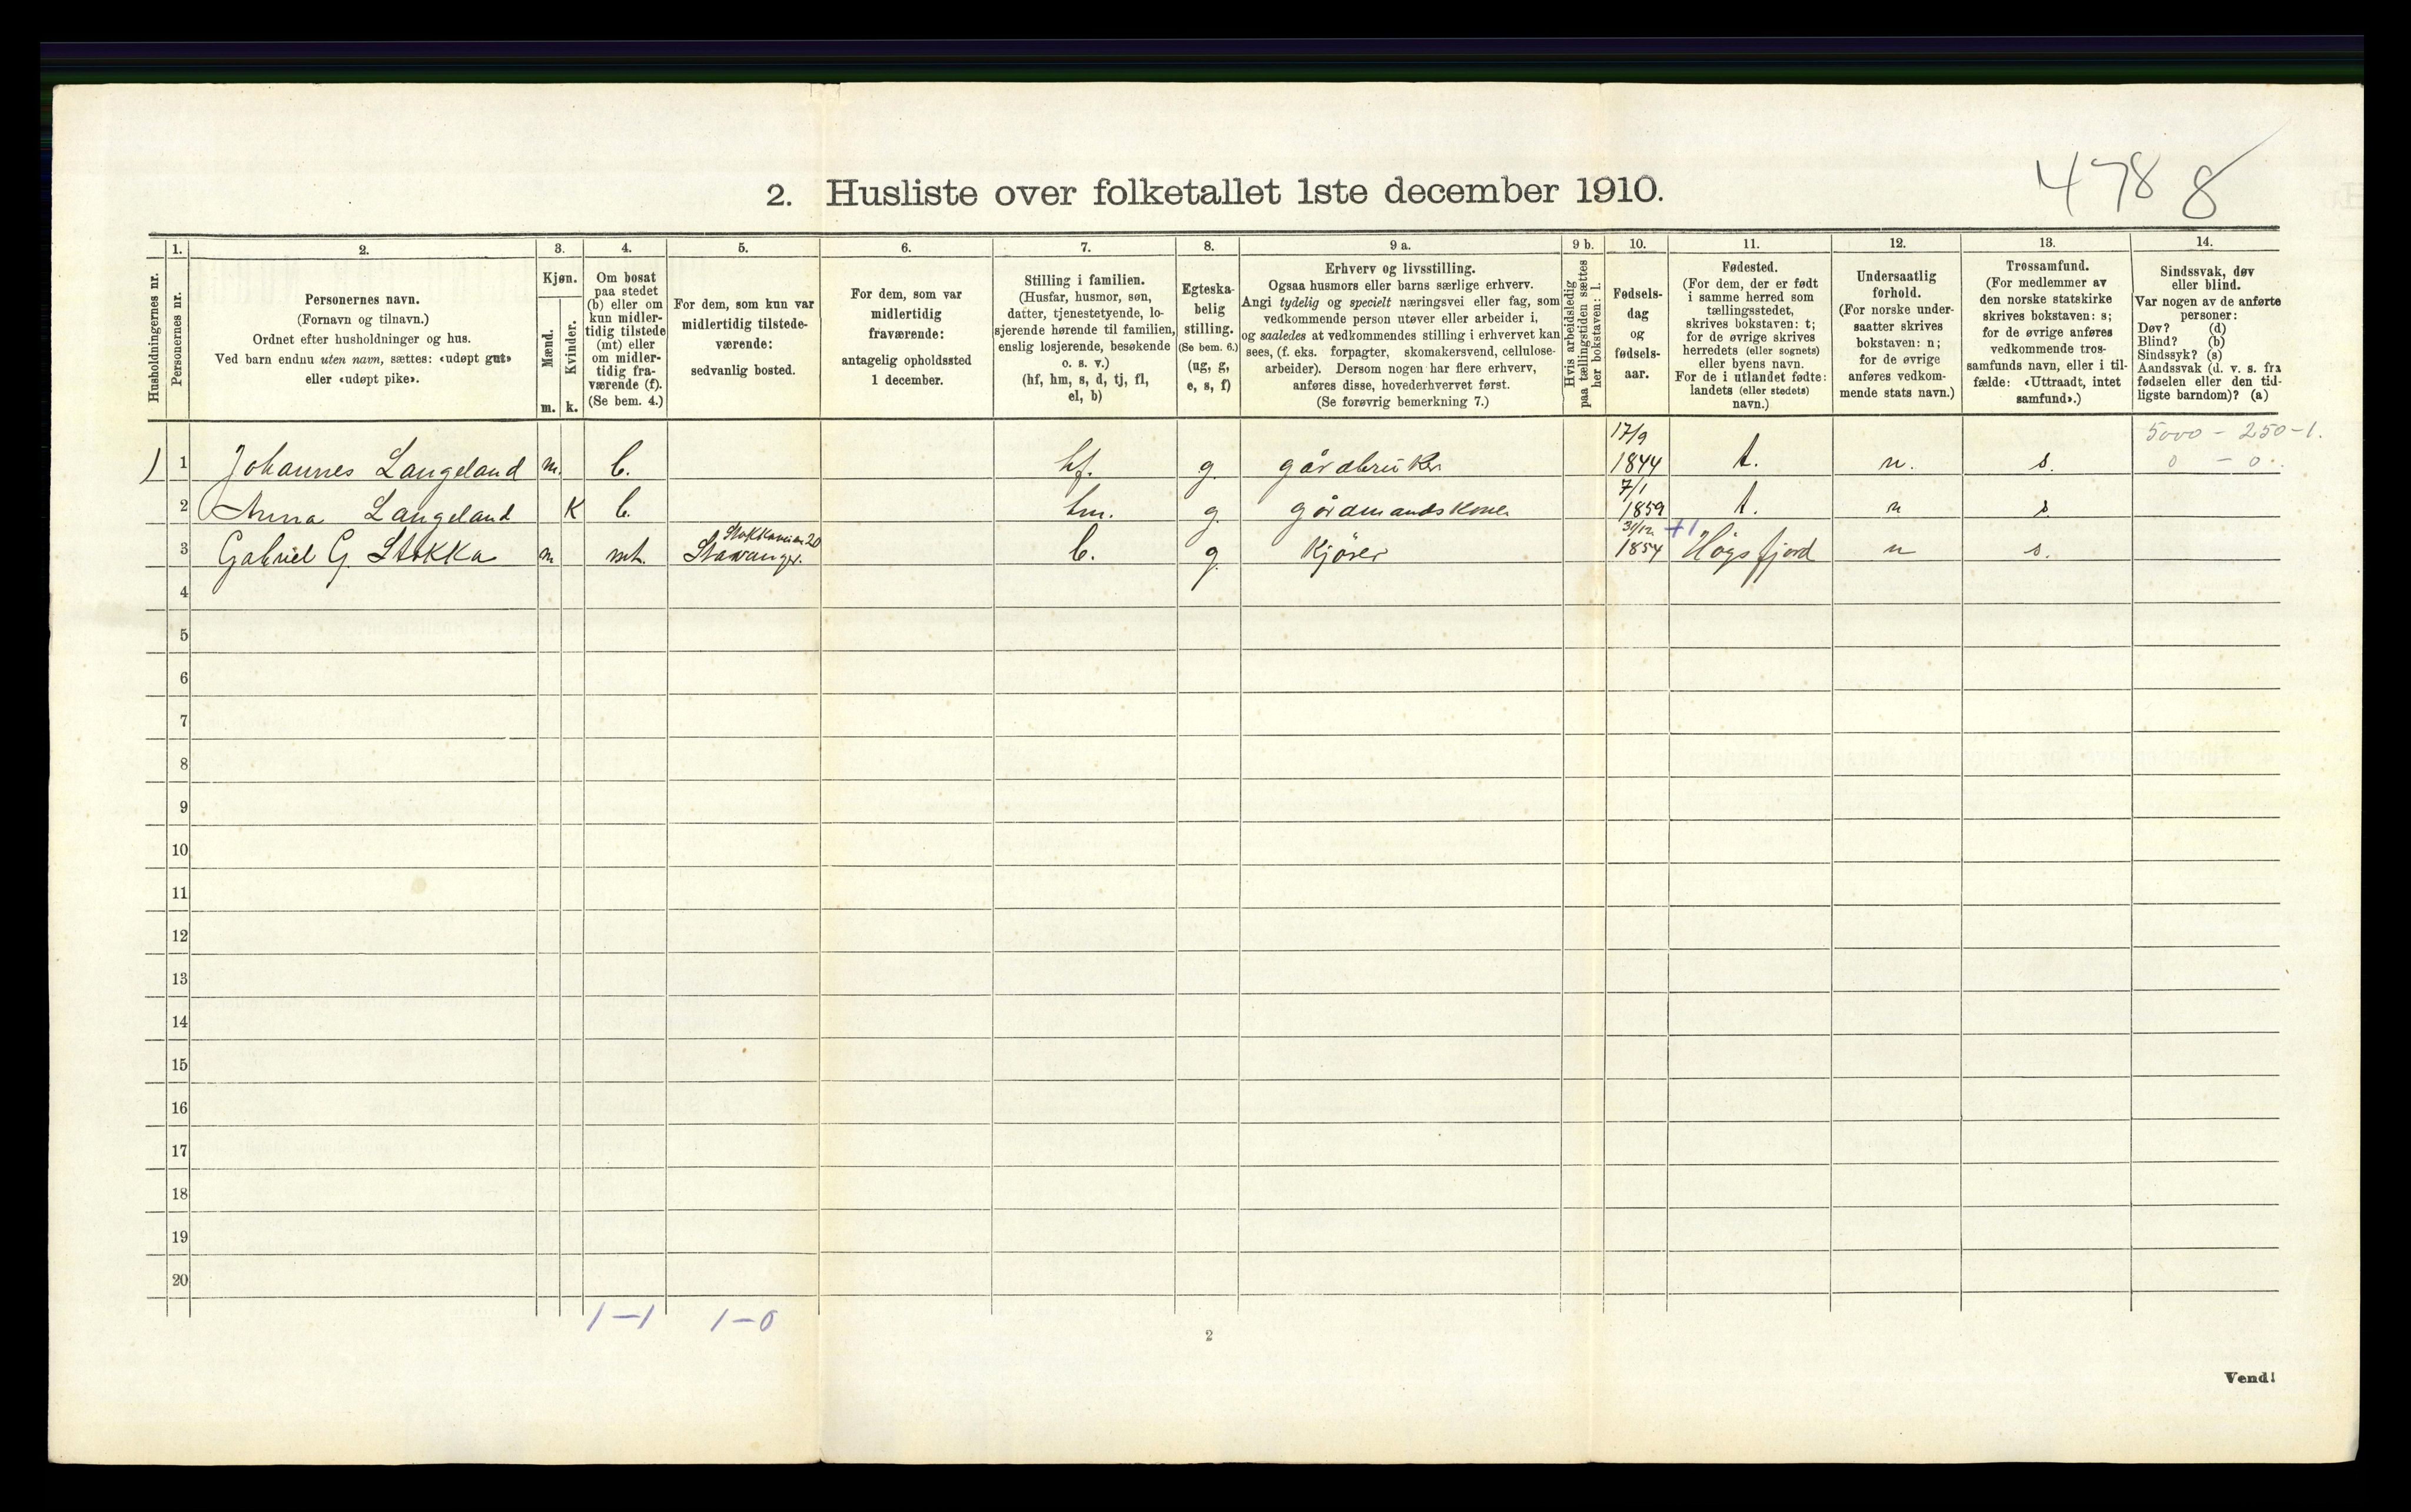 478 8
2. Husliste over folketallet 1ste december 1910.
Husholdningernes nr.
1.
Personernes nr.
2.
Personernes navn.
(Fornavn og tilnavn.)
Ordnet efter husholdninger og hus.
Ved barn endnu uten navn, sættes: «udøpt gut»
eller «udøpt pike».
3.
Kjøn.
Mænd.
Kvinder.
m. k.
4.
Om bosat
paa stedet
(b) eller om
kun midler-
tidig tilstede
(mt) eller
om midler-
tidig fra-
værende (f).
(Se bem. 4.)
5.
For dem, som kun var
midlertidig tilstede-
værende:
sedvanlig bosted.
6.
For dem, som var
midlertidig
fraværende:
antagelig opholdssted
1 december.
7.
Stilling i familien.
(Husfar, husmor, søn,
datter, tjenestetyende, lo-
sjerende hørende til familien,
enslig losjerende, besøkende
o. s. v.)
(hf, hm, s, d, tj, fl,
el, b)
8.
Egteska-
belig
stilling.
(Se bem. 6.)
(ug, g,
e, s, f)
9 a.
Erhverv og livsstilling.
Ogsaa husmors eller barns særlige erhverv.
Angi tydelig og specielt næringsvei eller fag, som
vedkommende person utøver eller arbeider i,
og saaledes at vedkommendes stilling i erhvervet kan
sees, (f. eks. forpagter, skomakersvend, cellulose-
arbeider). Dersom nogen har flere erhverv,
anføres disse, hovederhvervet først.
(Se forøvrig bemerkning 7.)
9 b.
Hvis arbeidsledig
paa tællingstiden sættes
her bokstaven: l.
10.
Fødsels-
dag
og
fødsels-
aar.
11.
Fødested.
(For dem, der er født
i samme herred som
tællingsstedet,
skrives bokstaven: t;
for de øvrige skrives
herredets (eller sognets)
eller byens navn.
For de i utlandet fødte:
landets (eller stedets)
navn.)
12.
Undersaatlig
forhold.
(For norske under-
saatter skrives
bokstaven: n;
for de øvrige
anføres vedkom-
mende stats navn.)
13.
Trossamfund.
(For medlemmer av
den norske statskirke
skrives bokstaven: s;
for de øvrige anføres
vedkommende tros-
samfunds navn, eller i til-
fælde: «Uttraadt, intet
samfund».)
14.
Sindssvak, døv
eller blind.
Var nogen av de anførte
personer:
Døv? (d)
Blind? (b)
Sindssyk? (s)
Aandssvak (d. v. s. fra
fødselen eller den tid-
ligste barndom)? (a)
17/9 5000 - 250 - 1.
1 1 Johannes Langeland m. b. hf. g. gårdbruker 1844 t. n. s. 0 - 0.
7/1
2 Anna Langeland K b. hm. g. gårdmandskone 1859 t. n s
Stokkaveien 20 31/12 +1
3 Gabriel G. Stokka m mt. Stavanger. b. g. Kjører 1854 Högsfjord n s.
4
5
6
7
8
9
10
11
12
13
14
15
16
17
18
19
20
1-1 1-0
2
Vend!